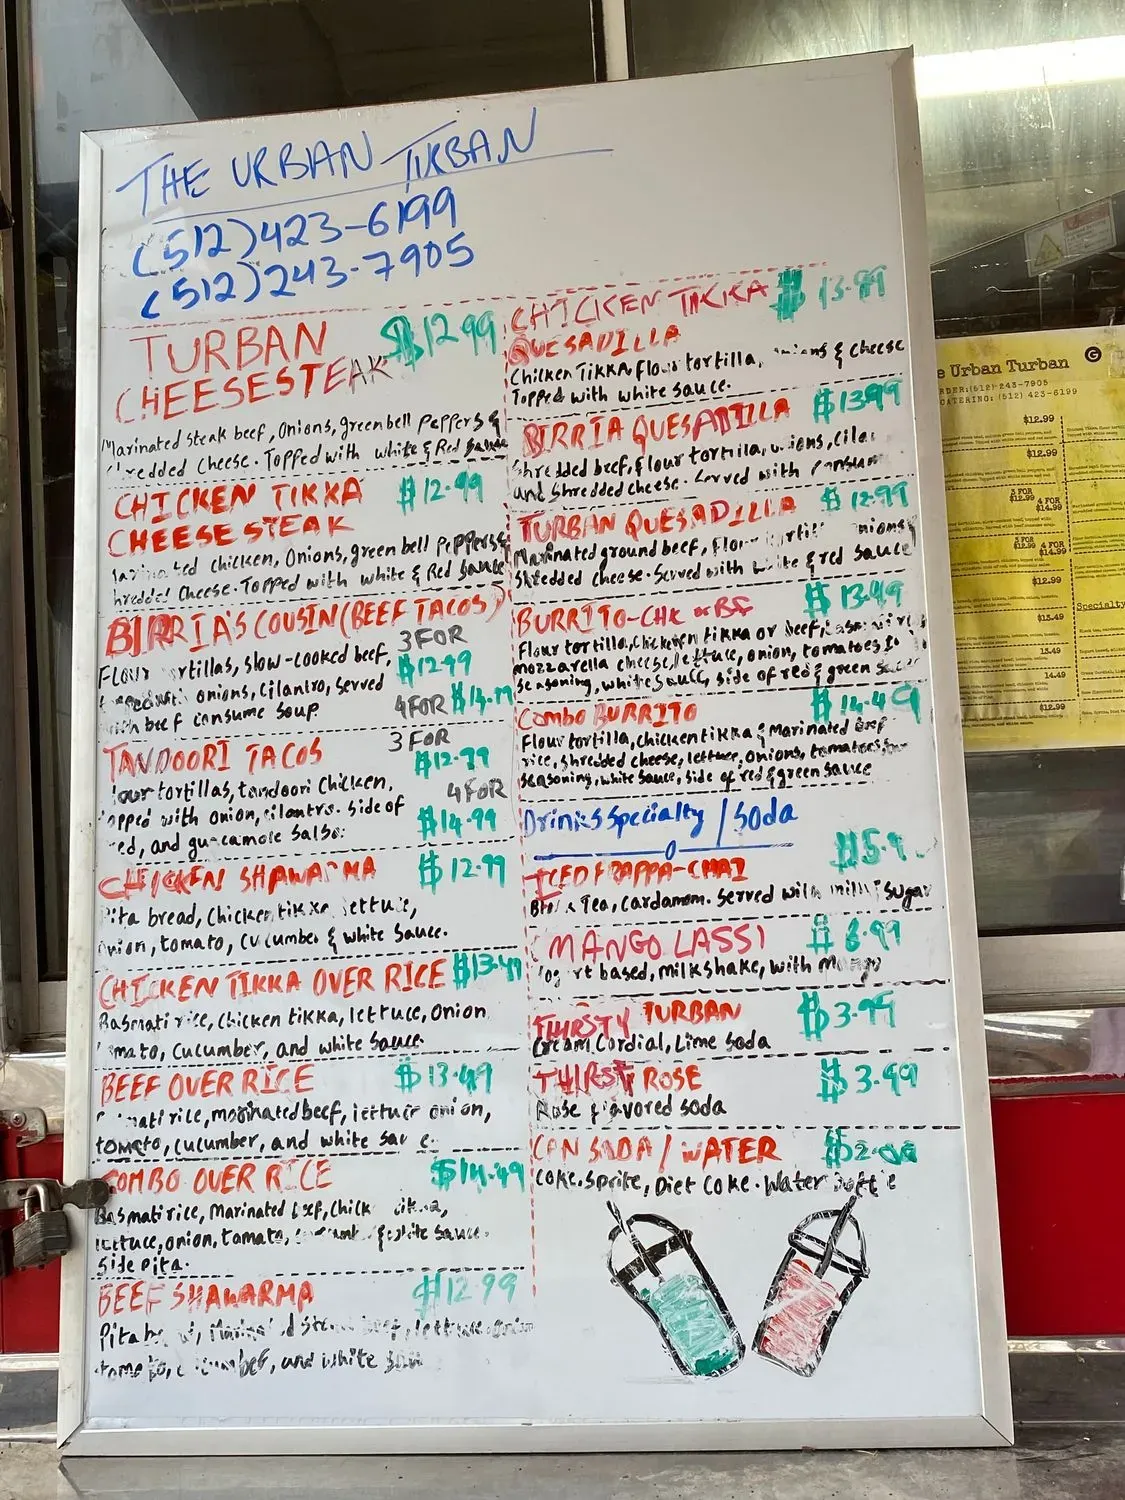 THE URBAN TURBAN
(512)423-6199
(512)243-7905
TURBAN $12.99
CHEESESTEAK
Marinated steak beef, Onions, green bell Peppers &
shredded cheese. Topped with white & Red Sauce
CHICKEN TIKKA $12.99
CHEESE STEAK
Marinated chicken, Onions, green bell Peppers &
shredded Cheese. Topped with white & Red Sauce
BIRRIA'S COUSIN (BEEF TACOS)
3 FOR
Flour tortillas, slow-cooked beef,
$12.99
onions, cilantro, served
4 FOR $14.99
with beef consume soup.
TANDOORI TACOS 3 FOR
$12.99
Flour tortillas, tandoori chicken,
4 FOR
topped with onion, cilantro. Side of
$14.99
red, and guacamole salsa.
CHICKEN SHAWARMA $12.99
Pita bread, chicken tikka, lettuce,
onion, tomato, cucumber & white sauce.
CHICKEN TIKKA OVER RICE $13.49
Basmati rice, chicken tikka, lettuce, onion
tomato, cucumber, and white sauce.
BEEF OVER RICE $13.49
Basmati rice, marinated beef, lettuce onion,
tomato, cucumber, and white sauce.
COMBO OVER RICE $14.49
Basmati rice, Marinated beef, chicken tikka,
lettuce, onion, tomato, & white sauce.
Side Pita.
BEEF SHAWARMA $12.99
Pita bread, Marinated steak beef, lettuce, onion
tomato, cucumber, and white
CHICKEN TIKKA $13.99
QUESADILLA
Chicken Tikka, flour tortilla, onions & cheese
Topped with white sauce.
BIRRIA QUESADILLA $13.99
Shredded beef, flour tortilla, onions,
and shredded cheese. Served with consume
TURBAN QUESADILLA $12.99
Marinated ground beef, flour tortilla onions
Shredded cheese. Served with white & red sauce
BURRITO-CHK or BF $13.49
Flour tortilla, chicken tikka or beef,
mozzarella cheese, lettuce, onion, tomatoes
seasoning, white sauce, side of red & green sauce
COMBO BURRITO $14.49
Flour tortilla, chicken tikka & Marinated Beef
rice, shredded cheese, lettuce, onions, tomatoes,
seasoning, white sauce, side of red & green sauce
Drinks specialty / Soda
ICED FRAPPA-CHAI
Black Tea, Cardamom. Served with milk, sugar
MANGO LASSI
Yogurt based, milkshake, with Mango
THIRSTY TURBAN $3.99
Cream Cordial, Lime Soda
THIRSTY ROSE $3.99
Rose flavored soda
CAN SODA / WATER $2.00
Coke. Sprite, Diet Coke. Water Bottle
Urban Turban
(512)-243-7905
CATERING: (512) 423-6199
$12.99
$12.99
3 FOR
$12.99 4 FOR
$14.99
3 FOR
$12.99 4 FOR
$14.99
$12.99
13.49
13.49
14.49
$12.99
Specialty